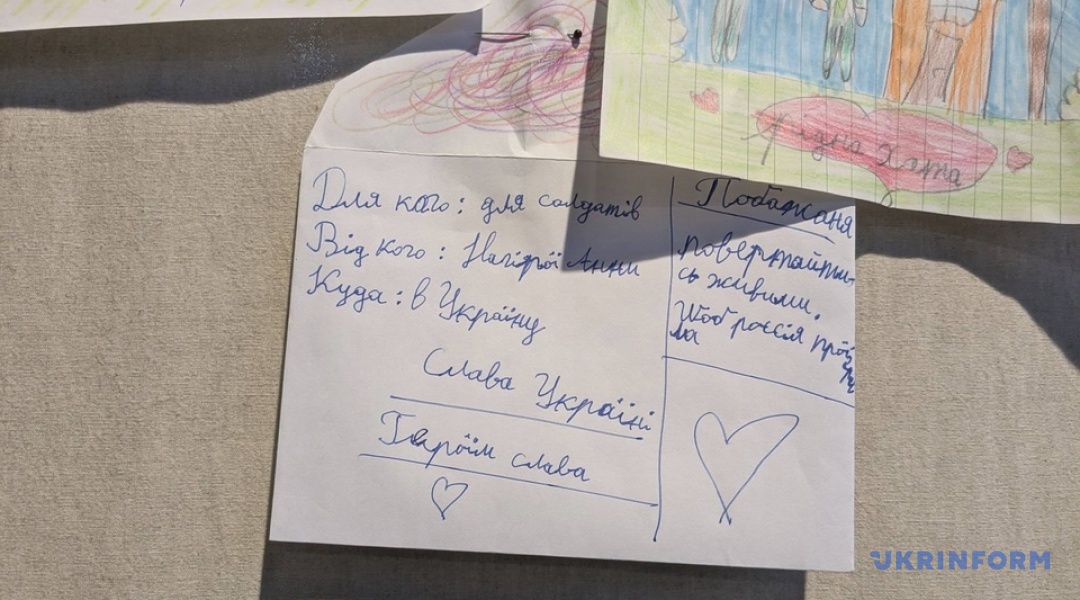 Рідна Хата
Для кого: для солдатів
Від кого: Нагірої Анни
Куда: в Україну
Слава Україні
Героїм слава
Побажаня
повертайти-
сь живими.
Щоб россія проіг
ра
ла
UKRINFORM